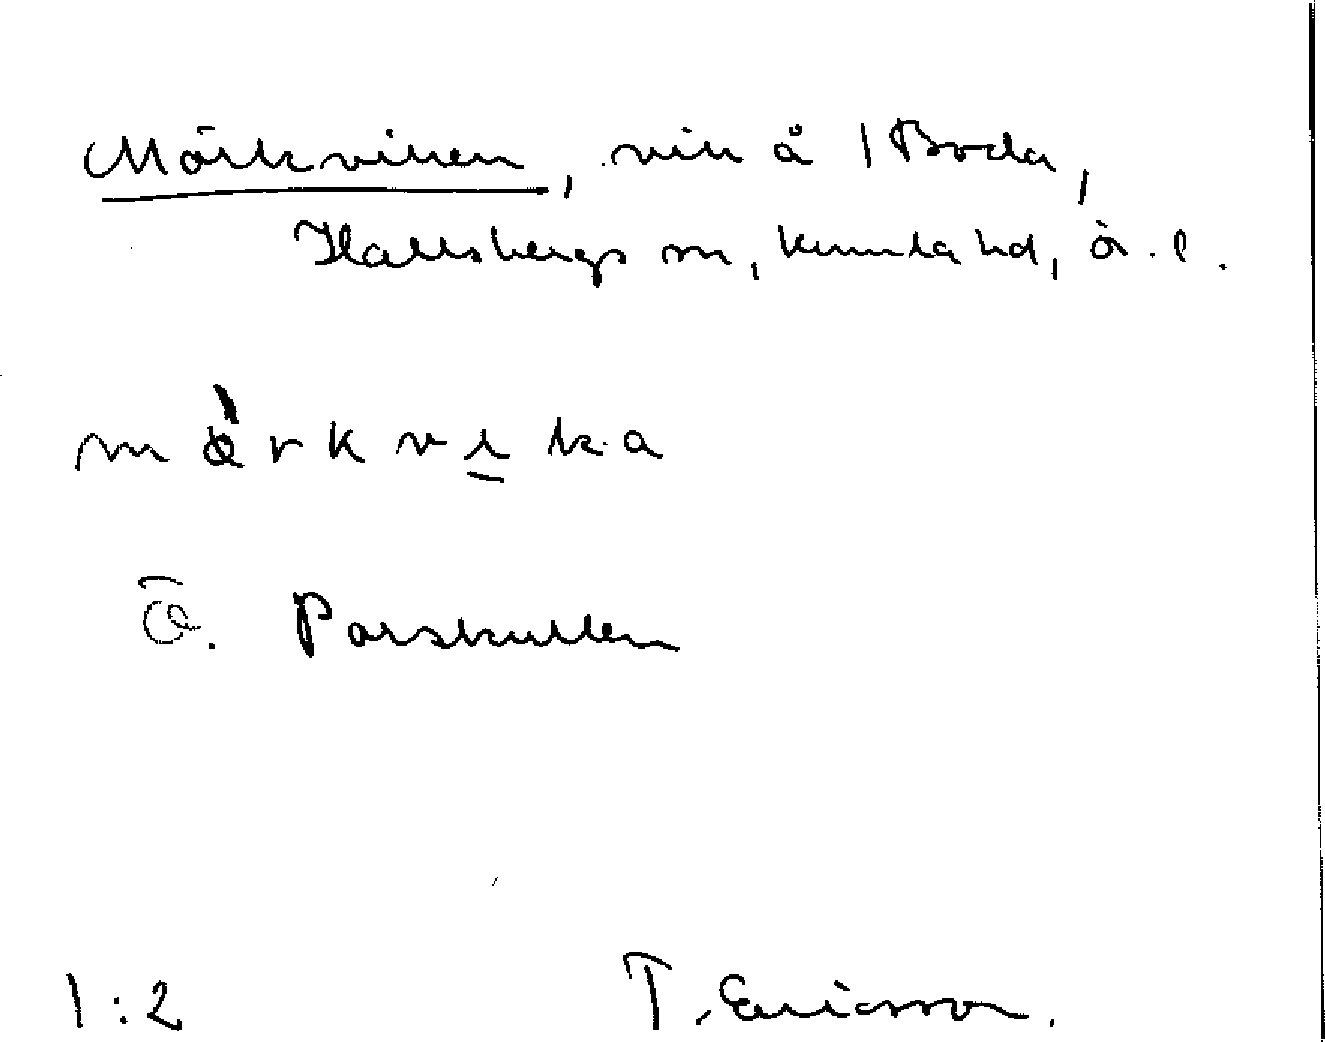 Mörkviken, vik å 1 Boda,
Hallsbergs sn, Kumla hd, ö.l.
mörkvika
Ö. Porskullen
1:2
T. Ericsson.